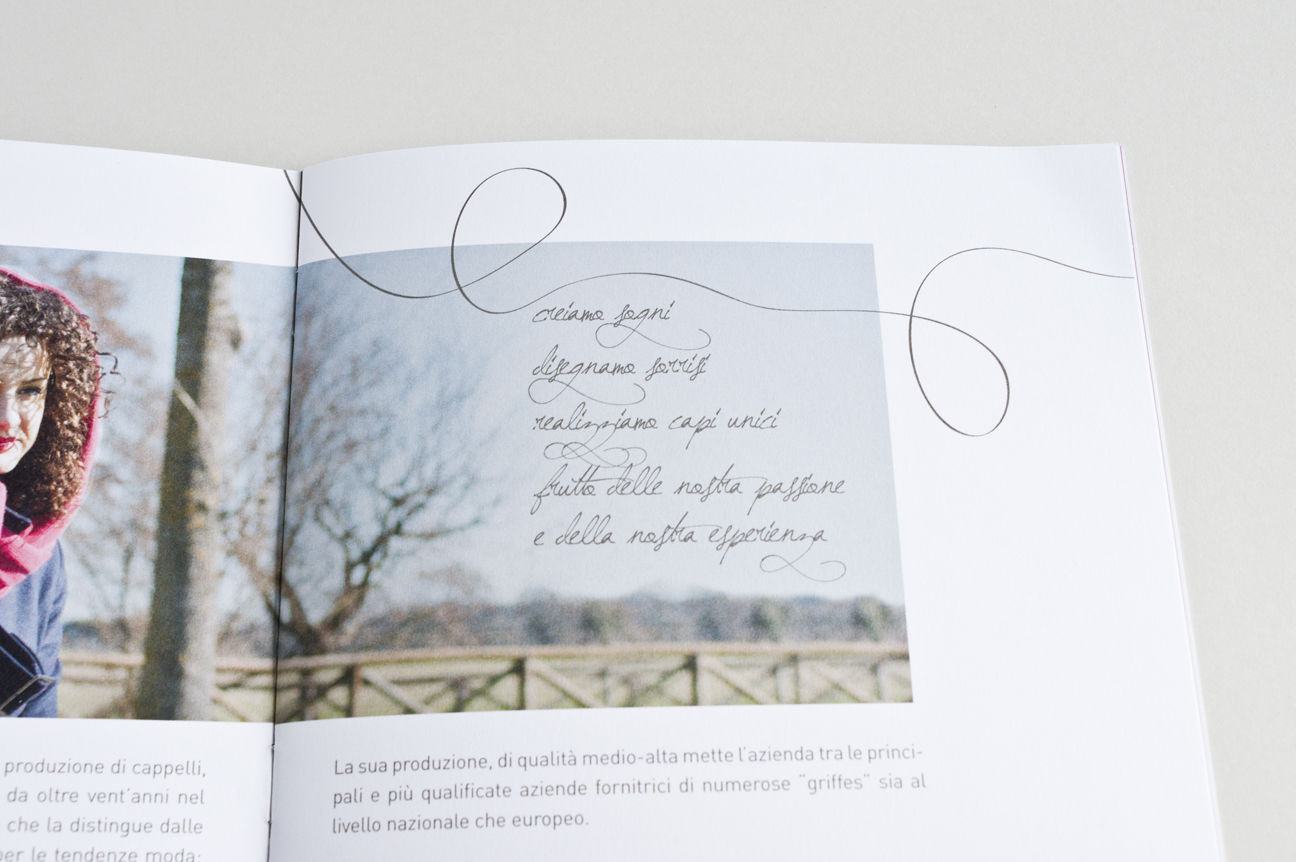 creiamo sogni
disegnamo sorrisi
realizziamo capi unici
frutto delle nostra passione
e della nostra esperienza
produzione di cappelli,
da oltre vent'anni nel
che la distingue dalle
per le tendenze moda:
La sua produzione, di qualità medio-alta mette l'azienda tra le princi-
pali e più qualificate aziende fornitrici di numerose "griffes" sia al
livello nazionale che europeo.